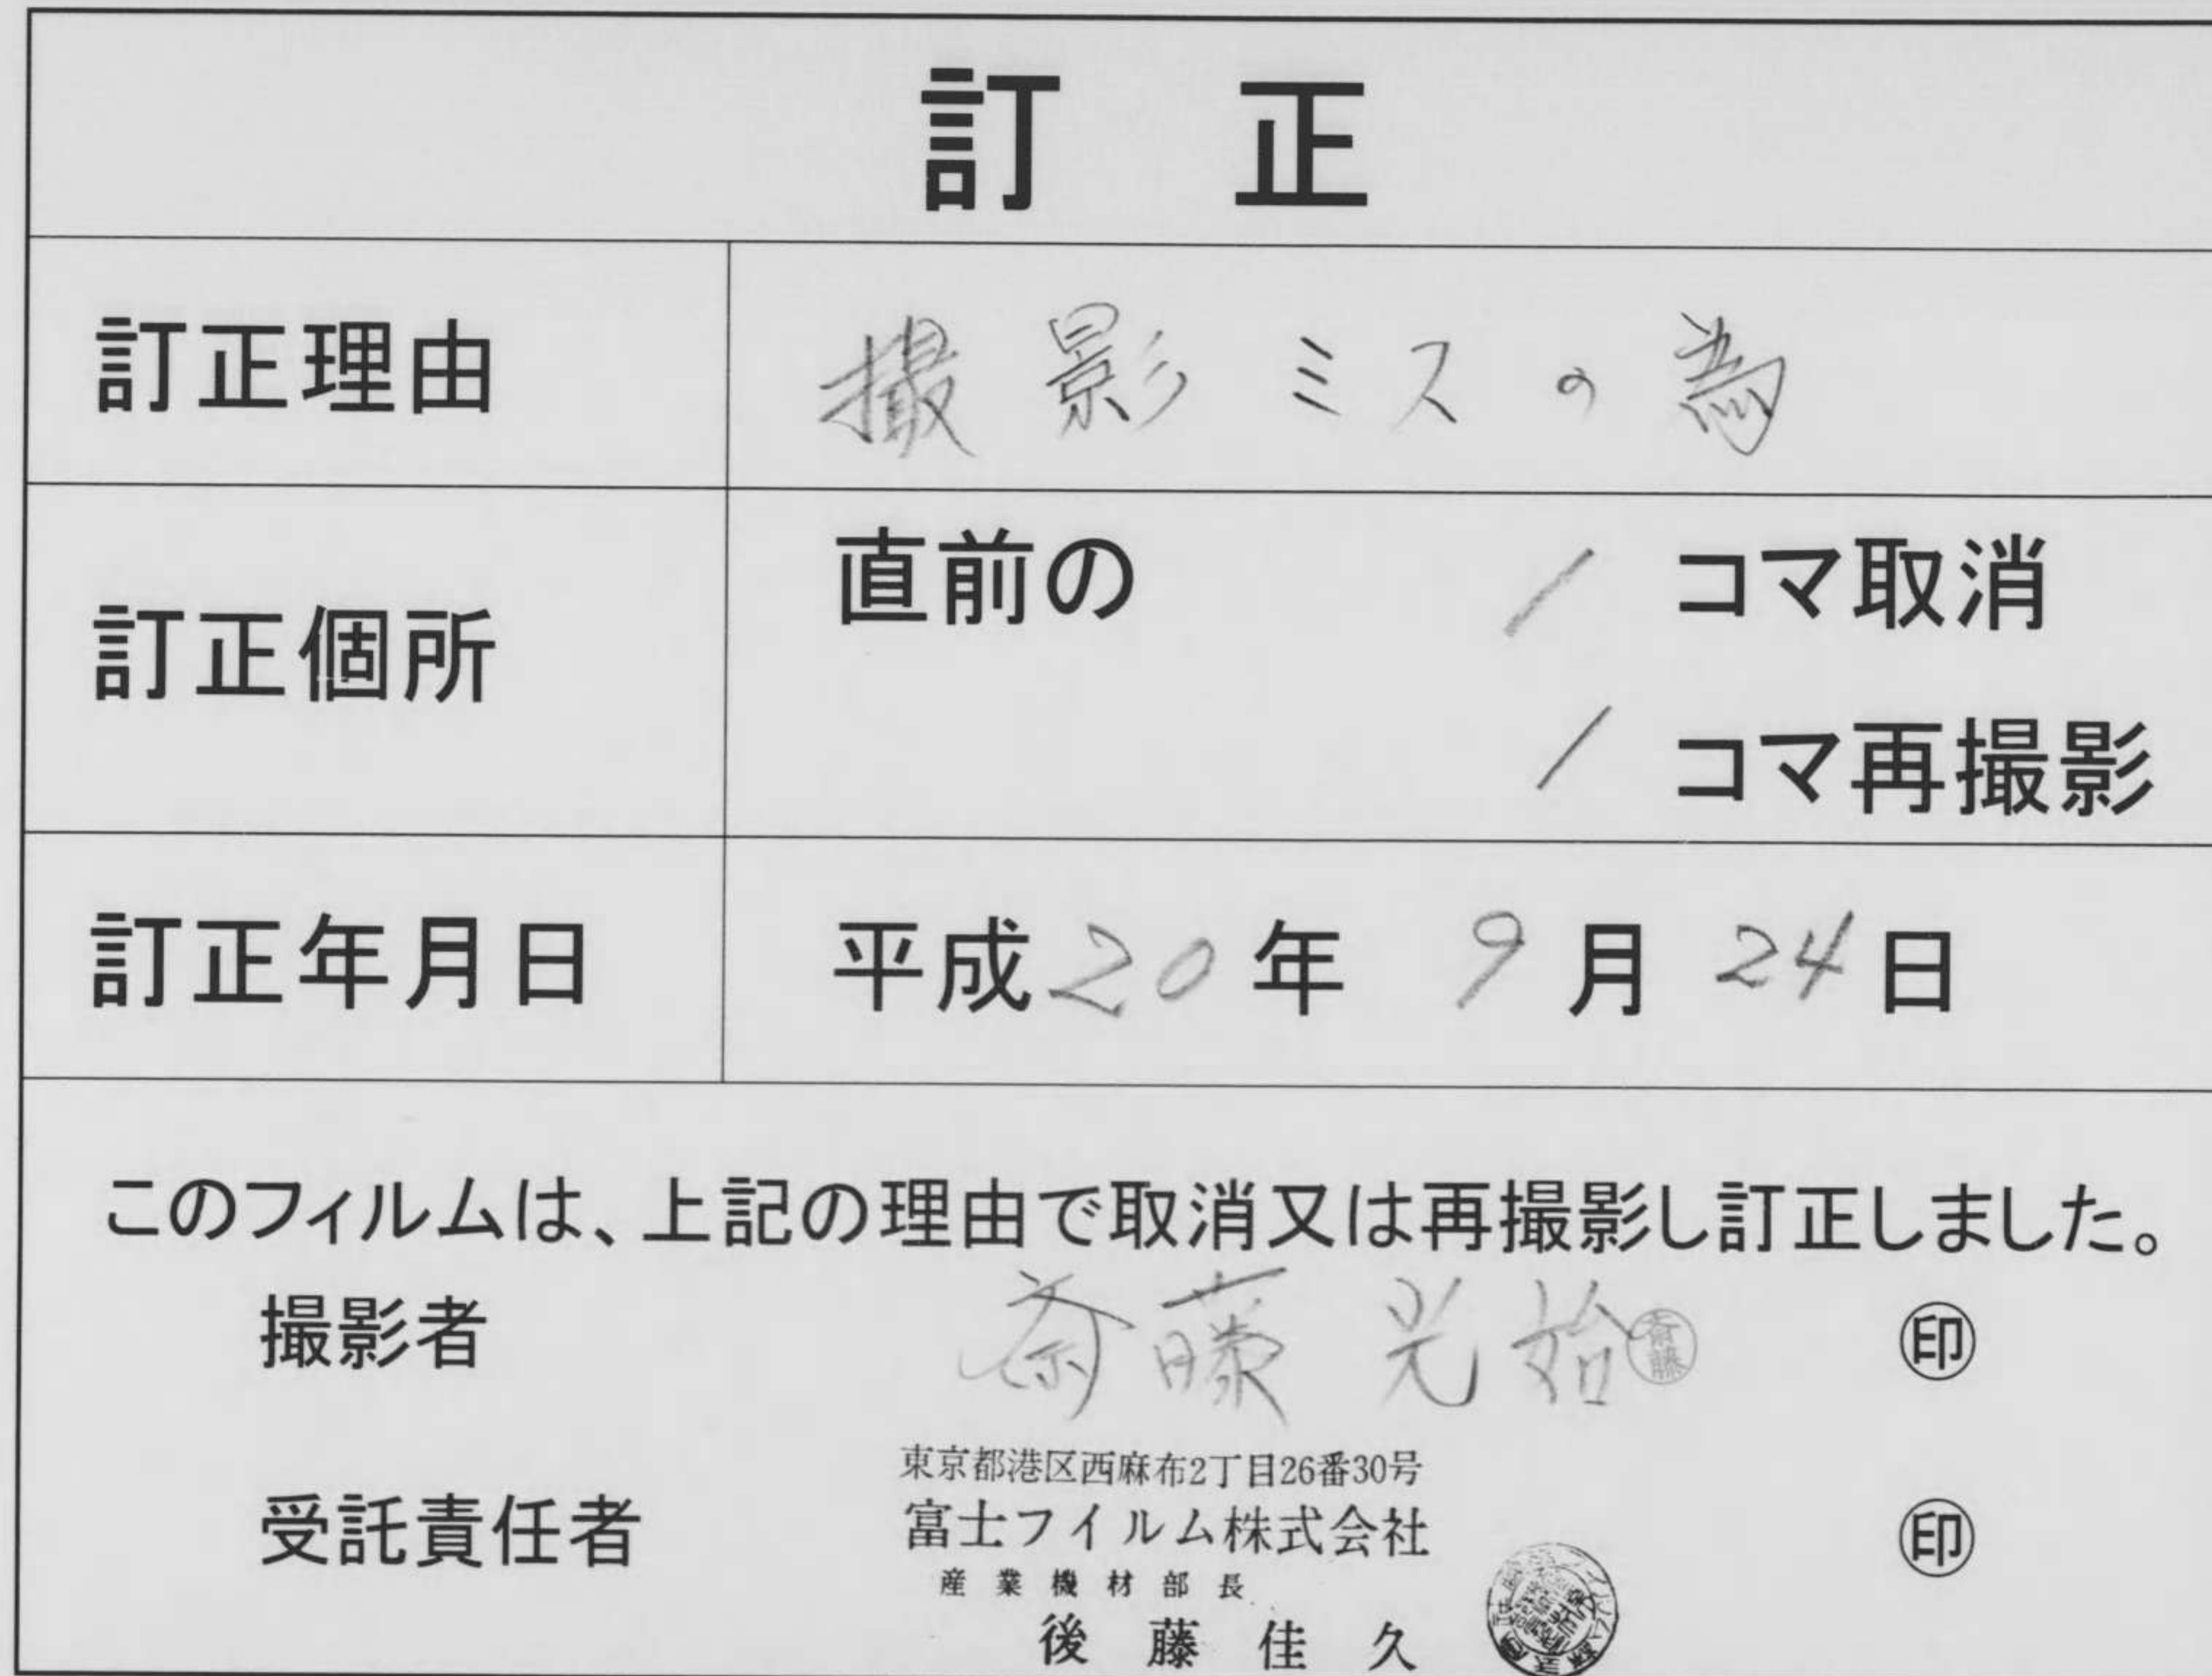 訂 正
訂正理由 撮影ミスの為
訂正個所 直前の / コマ取消
/ コマ再撮影
訂正年月日 平成20年 9月24日
このフィルムは、上記の理由で取消又は再撮影し訂正しました。
撮影者 斎藤光始 斎藤 ㊞
東京都港区西麻布2丁目26番30号
受託責任者 富士フイルム株式会社 ㊞
産業機材部長
後藤佳久